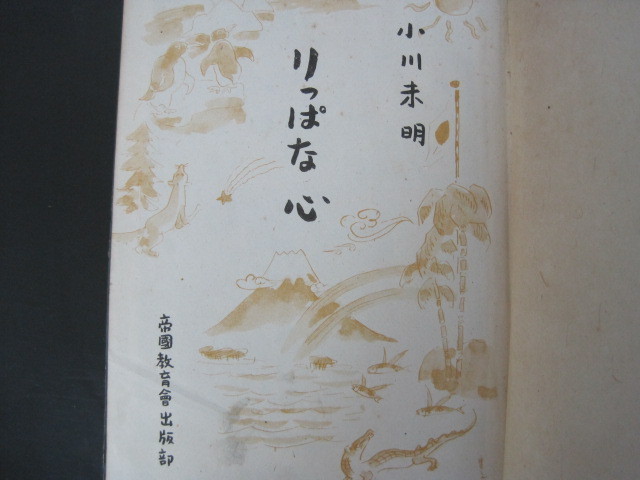 小川未明
りっぱな心
帝國教育會出版部